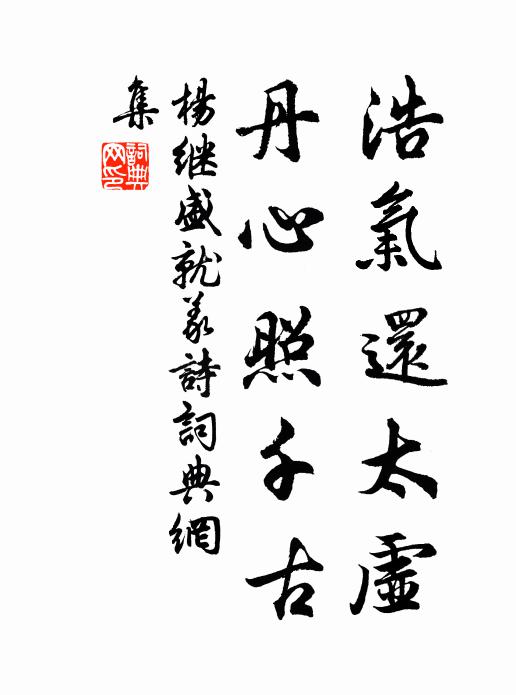 浩氣還太虛
丹心照千古
楊继盛就義詩詞典網
集
詞典
网印